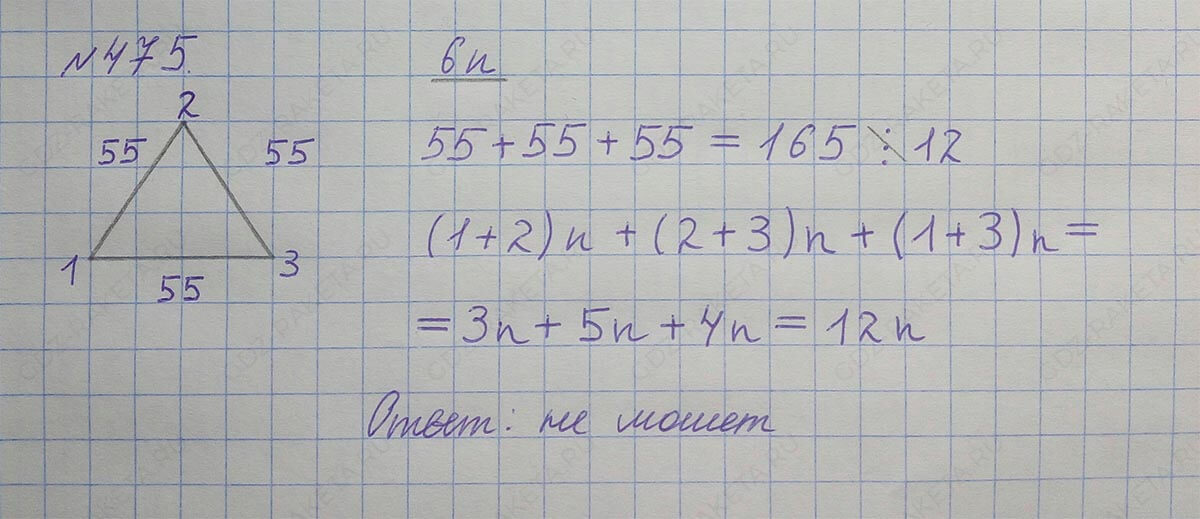 №475.
6n
2
55
55
1
3
55
55 + 55 + 55 = 165 ⋮̸ 12
(1+2)n + (2+3)n + (1+3)n =
= 3n + 5n + 4n = 12n
Ответ: не может